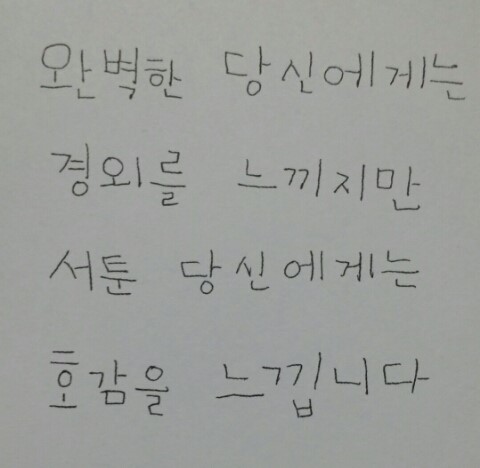 완벽한 당신에게는
경외를 느끼지만
서툰 당신에게는
호감을 느낍니다